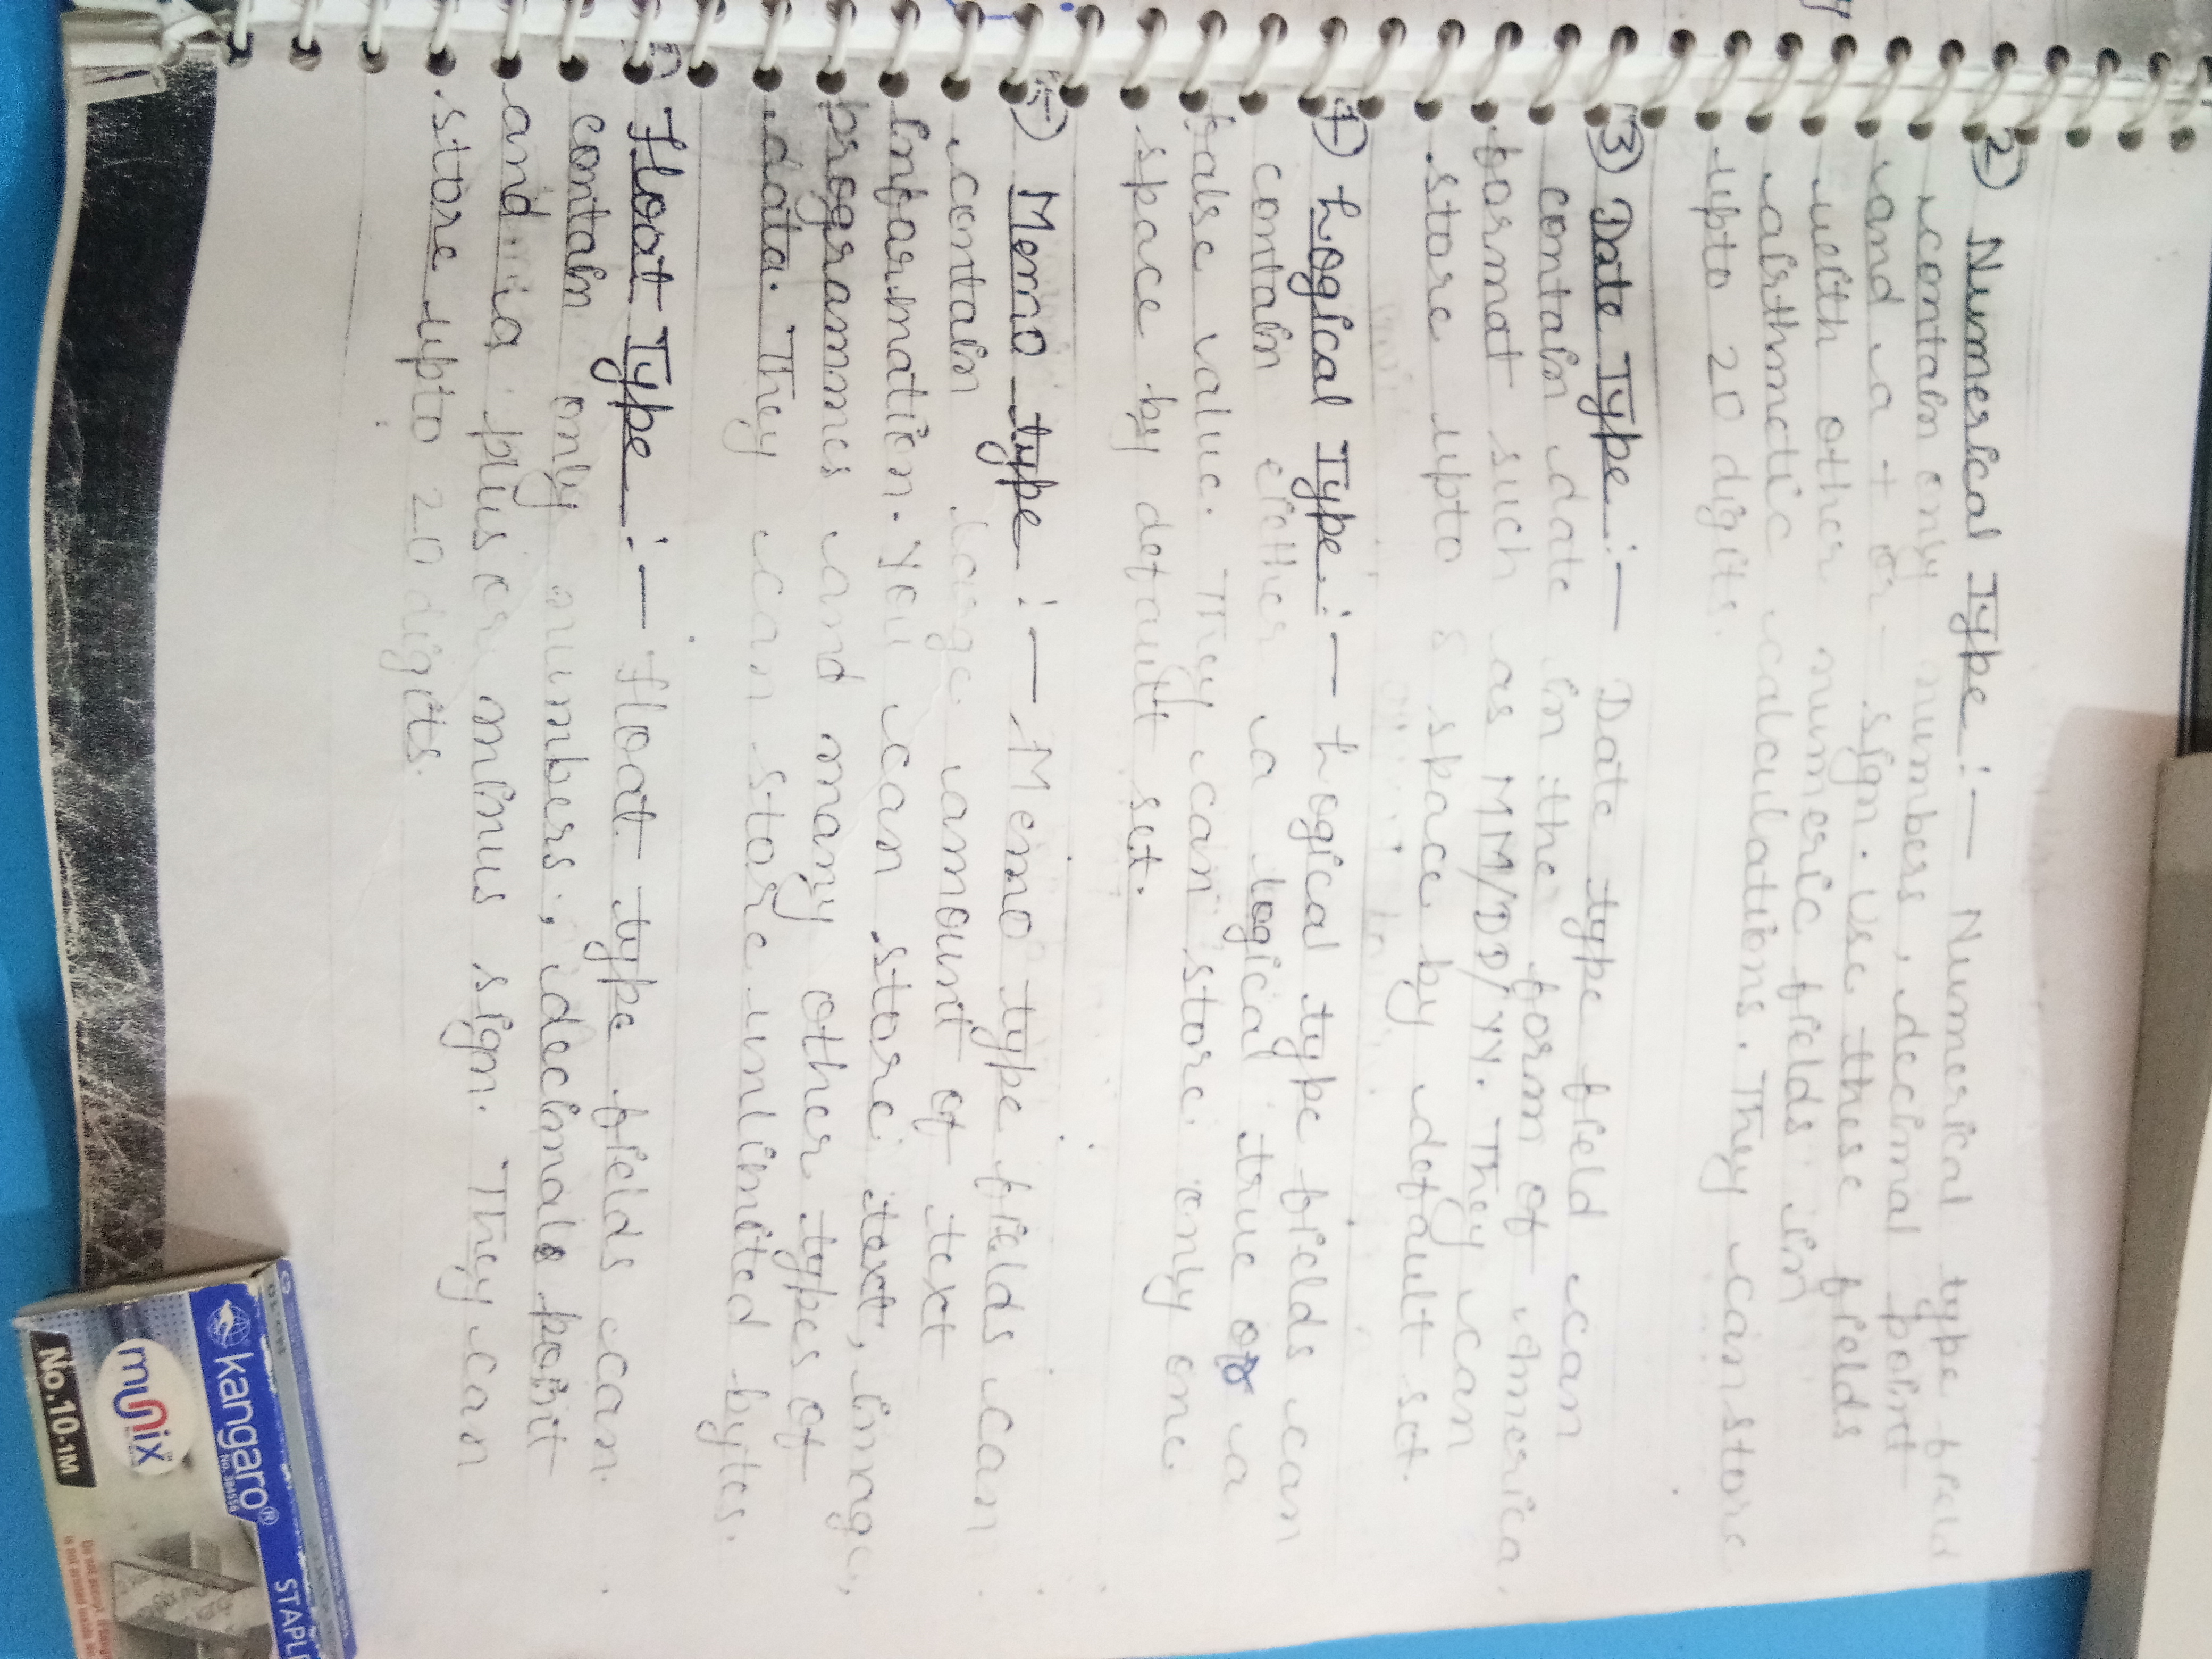 2) Numerical Type :— Numerical type field
contain only numbers, decimal point
and a + or - sign. Use these fields
with other numeric fields in
airthmetic calculations. They can store
upto 20 digits.
3) Date Type :— Date type field can
contain date in the form of America,
format such as MM/DD/YY. They can
store upto 8 space by default set.
4) Logical Type :— Logical type fields can
contain either a logical true or a
false value. They can store only one
space by default set.
5) Memo type :— Memo type fields can
contain large amount of text
information. You can store text, image,
programmes and many other types of
data. They can store unlimited bytes.
Float Type :— Float type fields can
contain only numbers, decimals point
and a plus or minus sign. They can
store upto 20 digits.
Kangaro®
munix
No.10-1M
STAPL